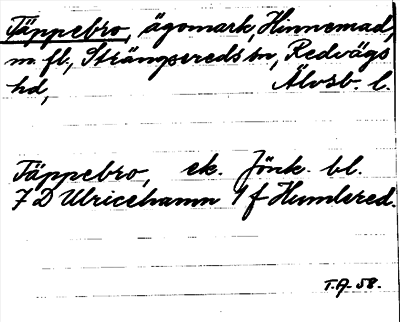 Täppebro, ägomark, Hinnemad,
m. fl., Strängsereds sn, Redvägs
hd, Älvsb. l.
Täppebro, ek. Jönk. bl.
7 D Ulricehamn 1 f Humlered.
T.A. 58.